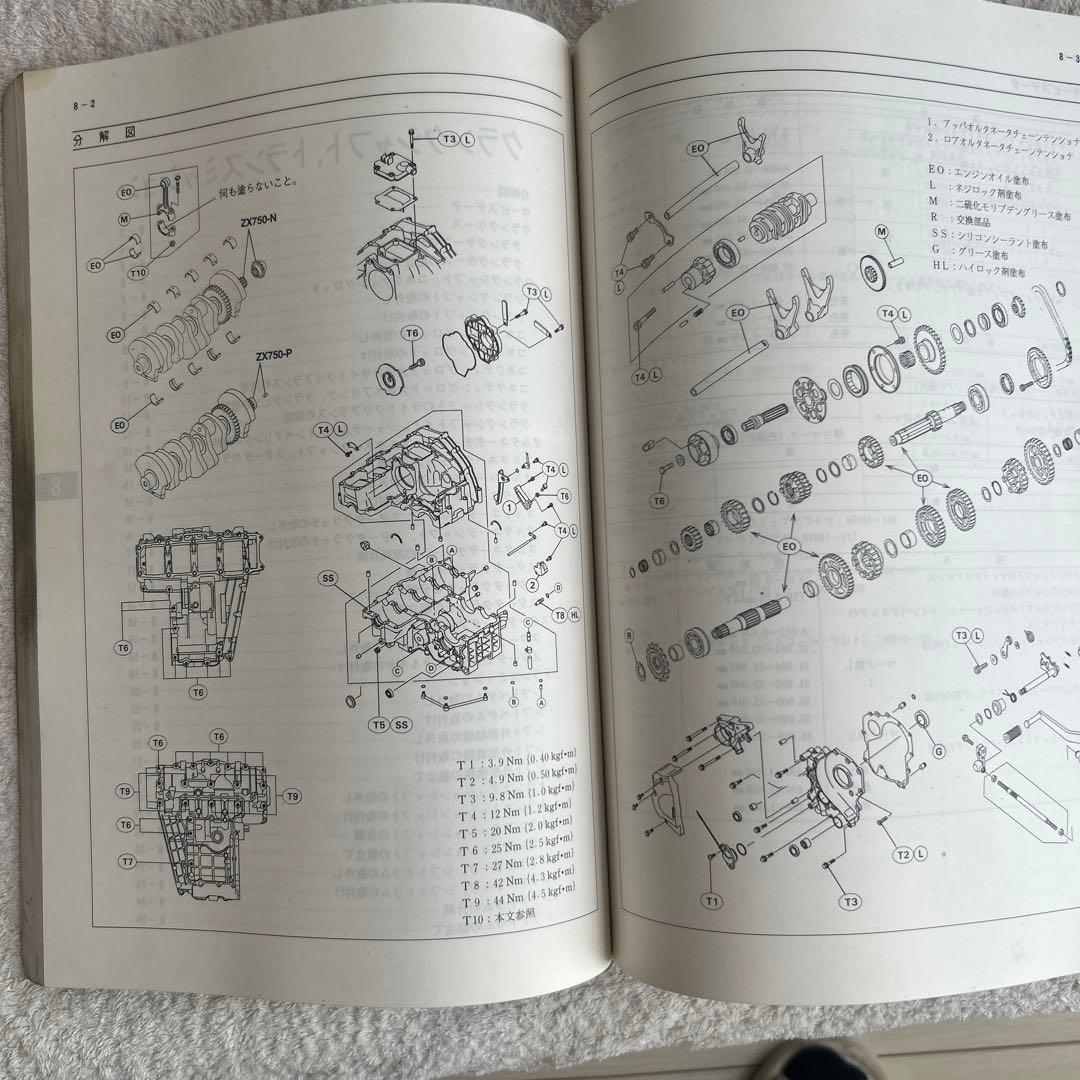 8-2
分解図
T3 L
EO
何も塗らないこと。
M
ZX750-N
EO
T10
T3 L
EO
T6
ZX750-P
EO
T4 L
T4 L
1
T6
T4 L
A
B
SS
2
D
T8 HL
C
T6
C
D
T6
B
A
T5 SS
T6
T6
T9
T9
T6
T7
T1 : 3.9 Nm {0.40 kgf•m}
T2 : 4.9 Nm {0.50 kgf•m}
T3 : 9.8 Nm {1.0 kgf•m}
T4 : 12 Nm {1.2 kgf•m}
T5 : 20 Nm {2.0 kgf•m}
T6 : 25 Nm {2.5 kgf•m}
T7 : 27 Nm {2.8 kgf•m}
T8 : 42 Nm {4.3 kgf•m}
T9 : 44 Nm {4.5 kgf•m}
T10 : 本文参照
8-3
1. アッパオルタネータチェーンテンショナ
2. ロアオルタネータチェーンテンショナ
EO : エンジンオイル塗布
L : ネジロック剤塗布
M : 二硫化モリブデングリース塗布
R : 交換部品
SS : シリコンシーラント塗布
G : グリース塗布
HL : ハイロック剤塗布
EO
T4
L
M
EO
T4 L
T4 L
T6
EO
EO
R
T3 L
G
T2 L
T1
T3
8